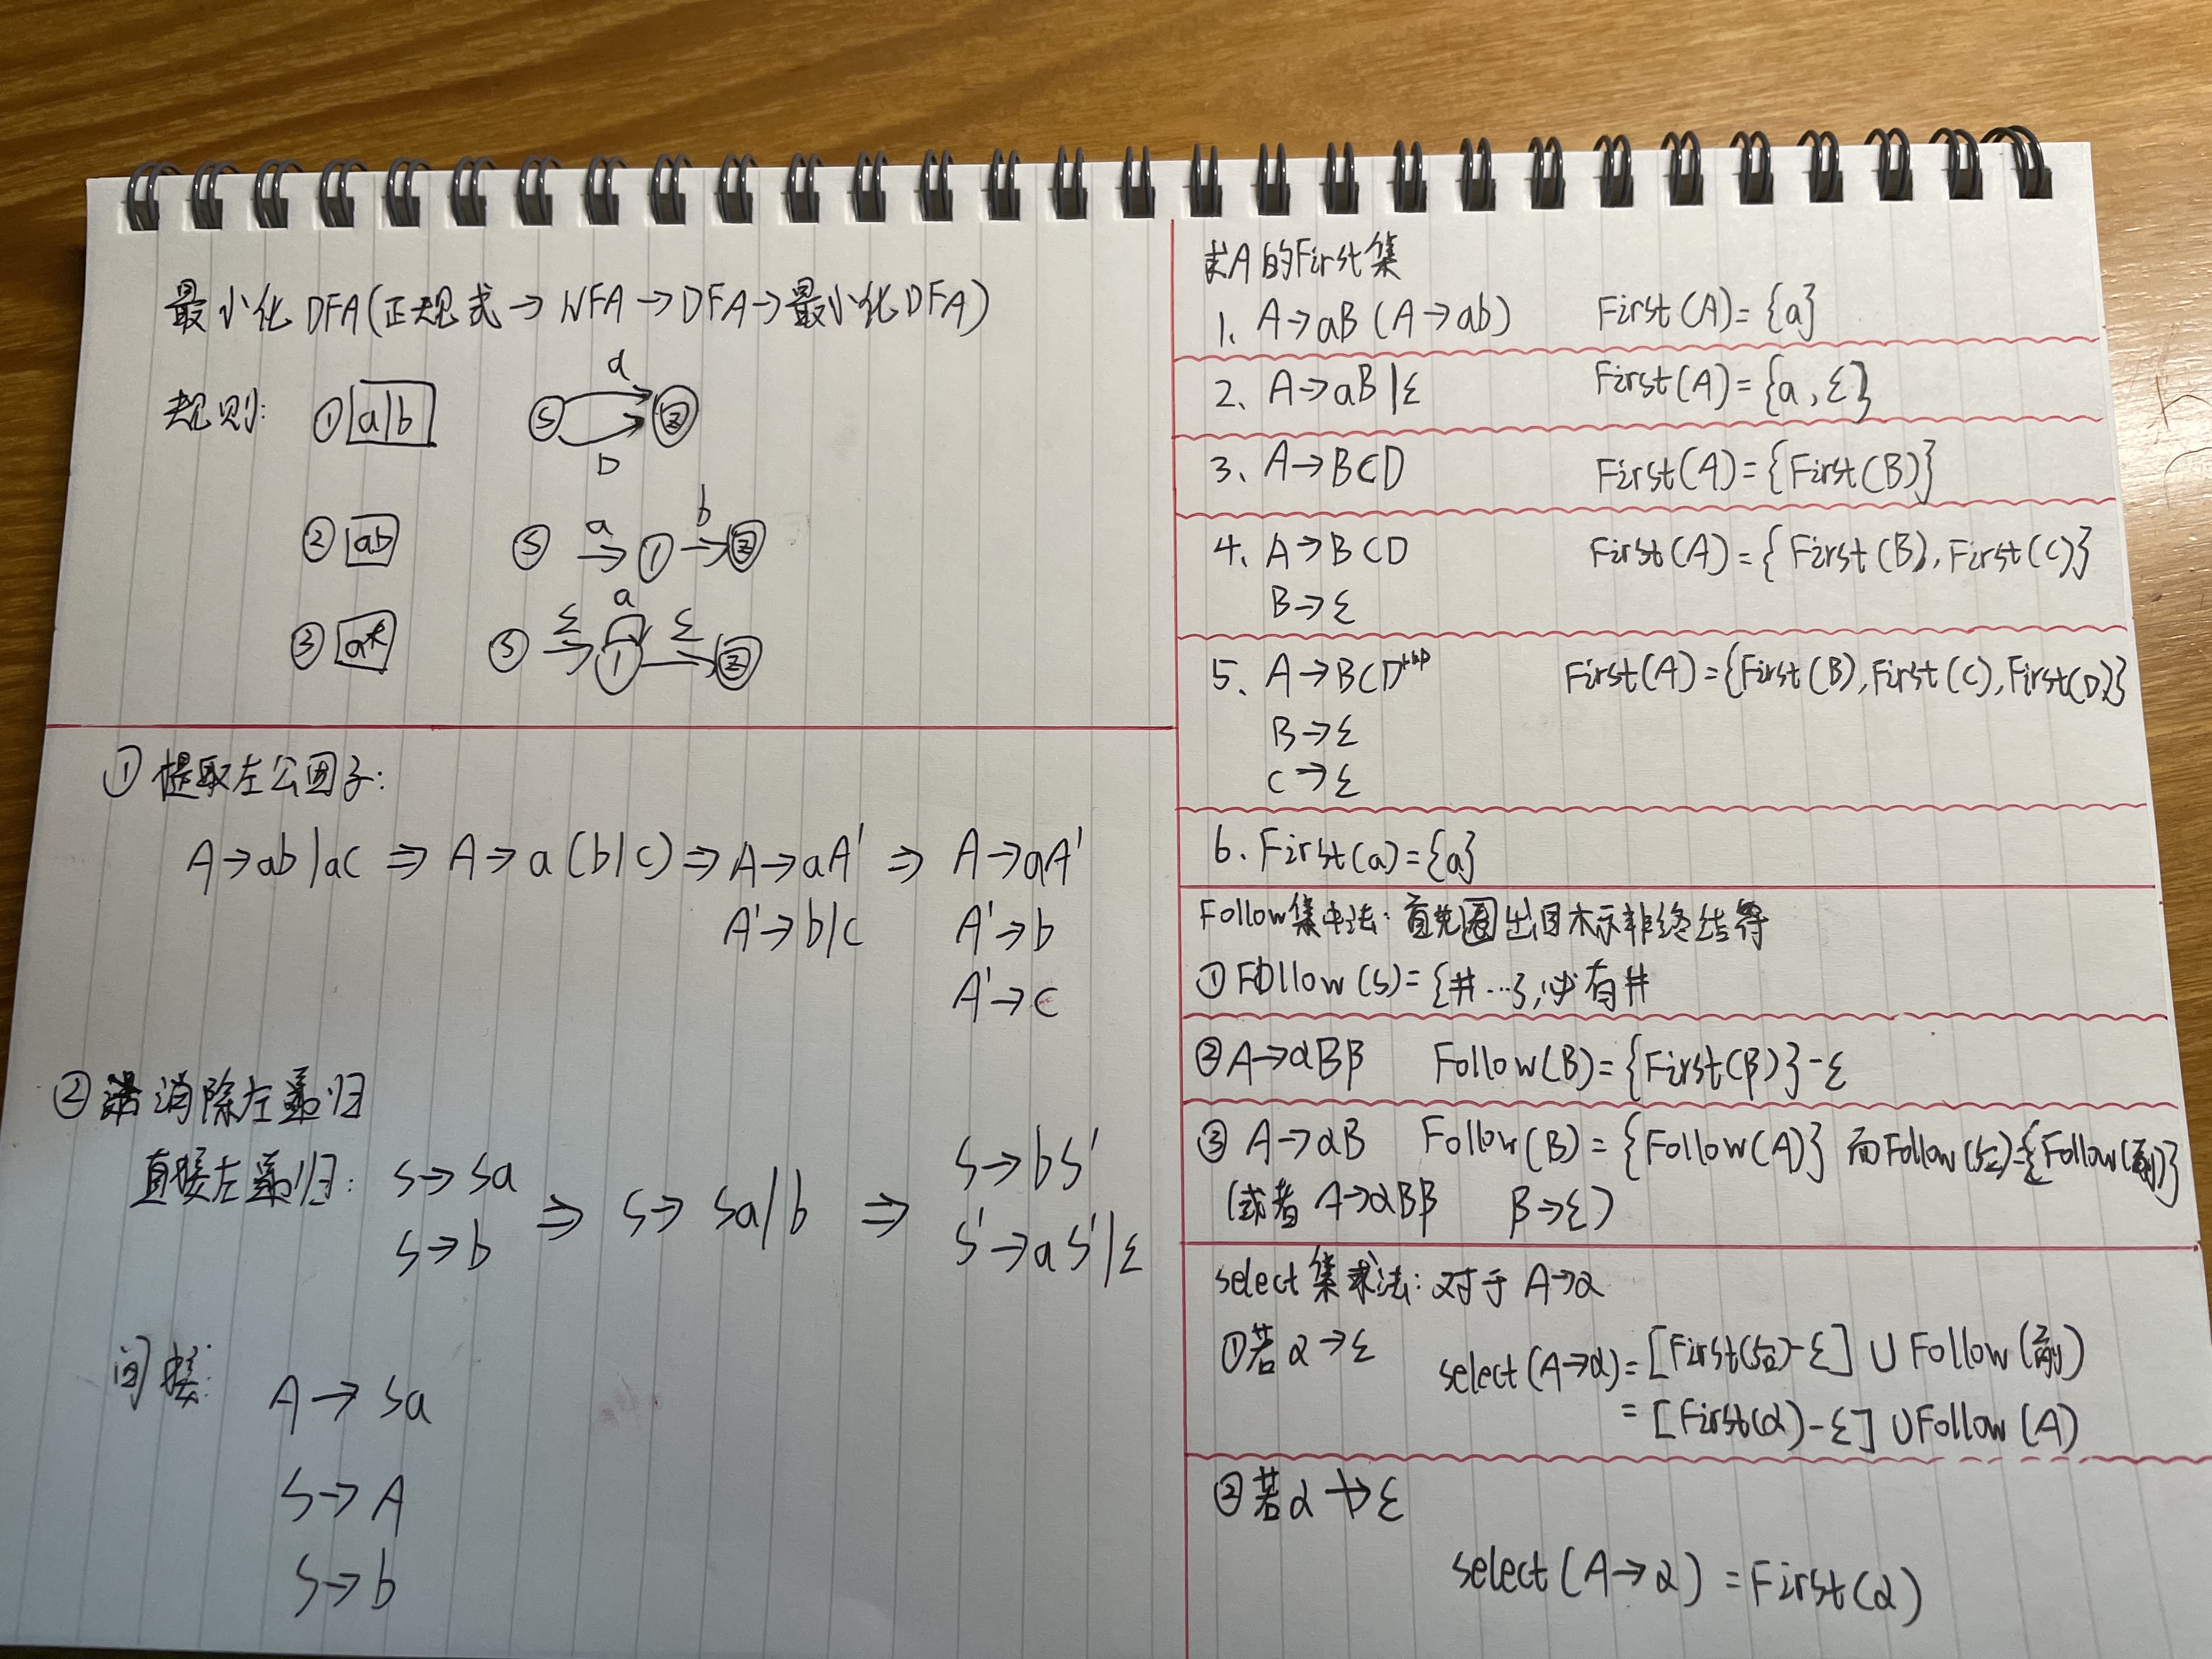 最小化DFA(正规式→NFA→DFA→最小化DFA)
规则: ① a|b
a
S Z
b
② ab S a→ 1 b→ Z
③ a* S ε→ 1 a ε→ Z
① 提取左公因子:
A→ab|ac ⇒ A→a(b|c) ⇒ A→aA' ⇒ A→aA'
A'→b|c A'→b
A'→c
② 消除左递归
直接左递归: S→Sa
S→b ⇒ S→Sa|b ⇒ S→bS'
S'→aS'|ε
间接:
A→Sa
S→A
S→b
求A的First集
1. A→aB(A→ab) First(A)={a}
2、A→aB|ε First(A)={a,ε}
3、A→BCD First(A)={First(B)}
4、A→BCD First(A)={First(B),First(C)}
B→ε
5、A→BCD First(A)={First(B),First(C),First(D)}
B→ε
C→ε
6. First(a)={a}
Follow集求法:首先圈出目标非终结符
① Follow(S)={#…},必有#
② A→αBβ Follow(B)={First(β)}-ε
③ A→αB Follow(B)={Follow(A)} 而Follow(后)={Follow(前)}
(或者 A→αBβ β→ε)
select集求法:对于 A→α
①若α→ε select(A→α)=[First(后)-ε]∪Follow(前)
=[First(α)-ε]∪Follow(A)
②若α↛ε
select(A→α)=First(α)